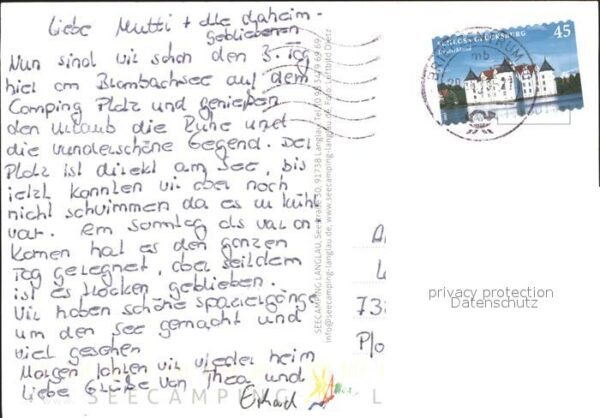 Liebe Mutti + alle daheim-
gebliebenen
Nun sind wir schon den 3. Tag
hier am Brombachsee auf dem
Camping Platz und genießen
den Urlaub die Ruhe und
die wunderschöne Gegend. Der
Platz ist direkt am See, bis
jetzt konnten wir aber noch
nicht schwimmen da es zu kühl
war. Am Sonntag als wir an
kamen hat es den ganzen
Tag geregnet, aber seitdem
ist es trocken geblieben.
Wir haben schöne Spaziergänge
um den See gemacht und
viel gesehen
Morgen fahren wir wieder heim
Liebe Grüße von Thea und
Erhard
SEECAMPING LANGLAU, Seestraße 30, 91738 Langlau, Tel.
info@seecamping-langlau.de, www.seecamping-langlau.de, Foto: Luftbild Dietz
SCHLOSS GLÜCKSBURG
Deutschland
45
BRIEFZENTRUM
mb
73
privacy protection
Datenschutz
SEECAMPING L